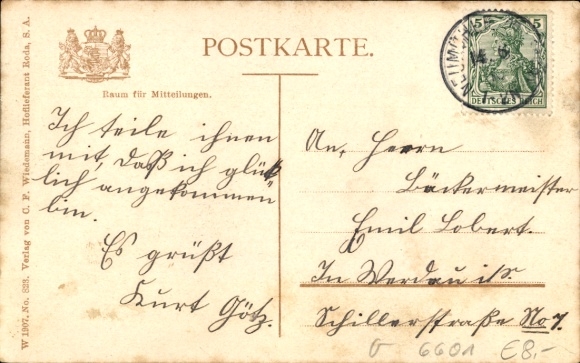 POSTKARTE.
Raum für Mitteilungen.
Ich teile ihnen
mit, daß ich glük-
lich angekommen
bin.
Es grüßt
Kurt Götz.
5 5
DEUTSCHES REICH
An, Herrn
Bäckermeister
Emil Lobert.
In Werdau i/S
Schillerstraße No 7.
6601 €8,-
W 1907, No. 833. Verlag von C. F. Wiedemann, Hoflieferant Roda, S. A.